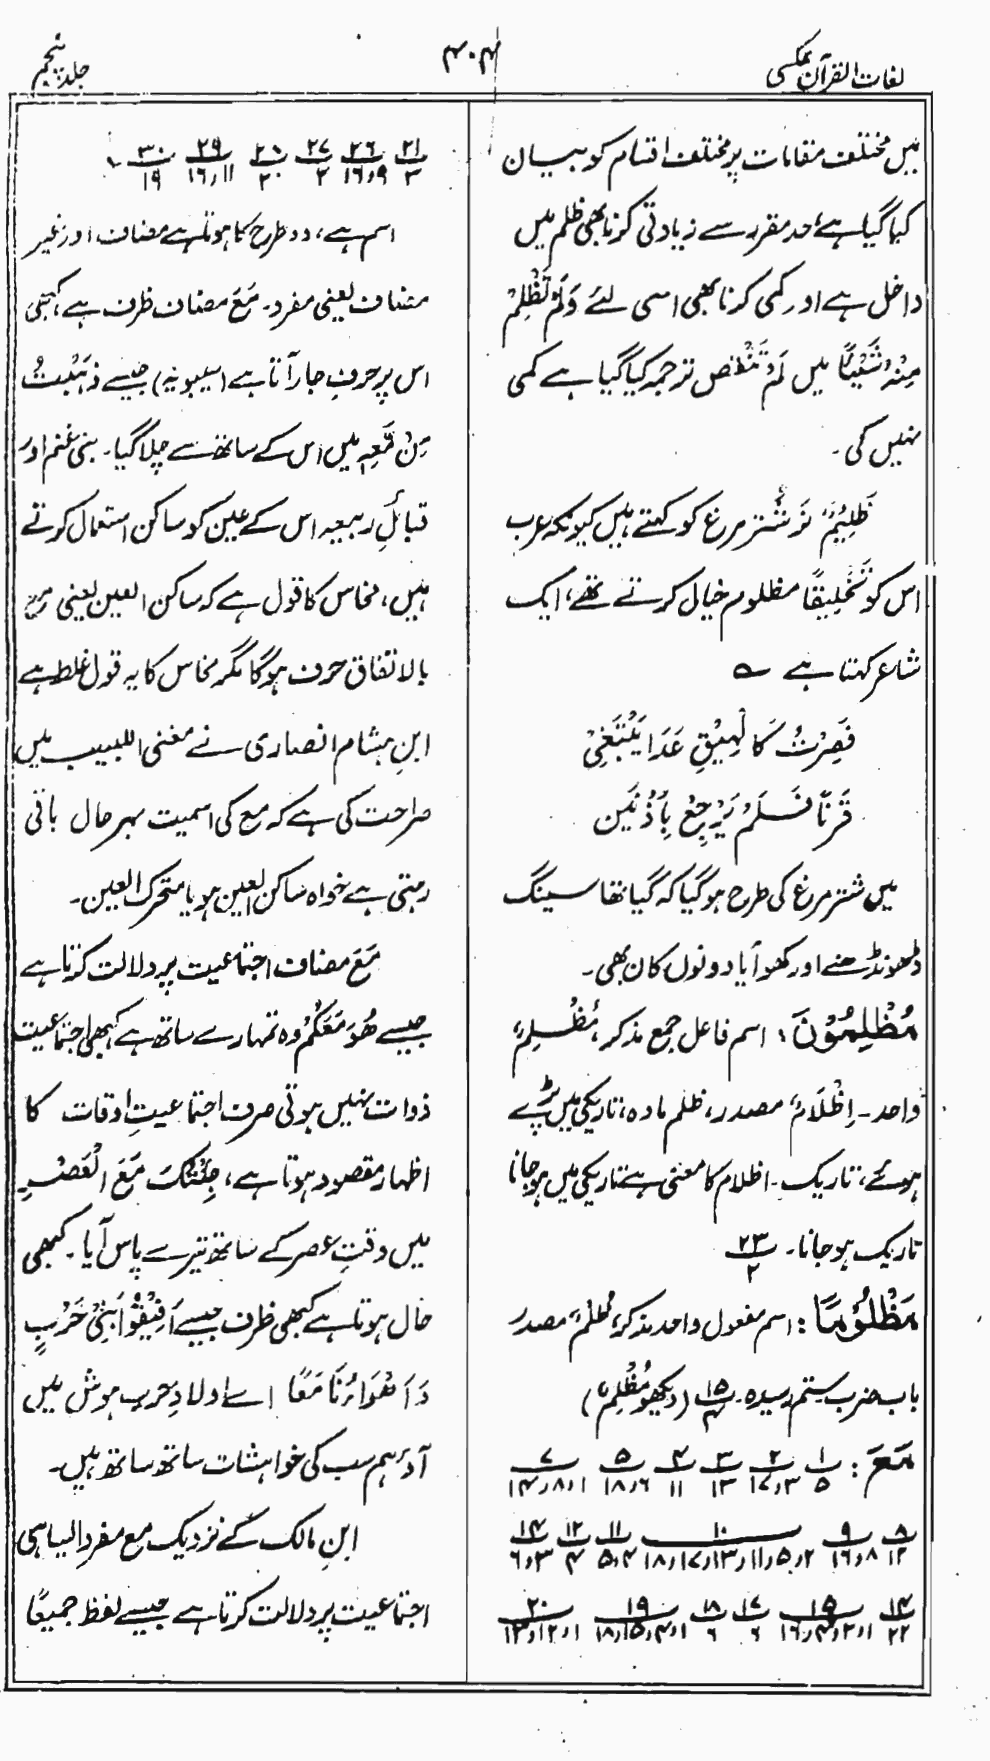 لغات القرآن عکسی
۴۰۴
جلد پنجم
میں مختلف مقامات پر مختلف اقسام کو بیان
کیا گیا ہے، حد مقررہ سے زیادتی کرنا بھی ظلم میں
داخل ہے اور کمی کرنا بھی اسی لئے وَلَمْ تَظْلِمْ
مِنْهُ شَيْئًا میں لَمْ تَنْقُص ترجمہ کیا گیا ہے کمی
نہیں کی۔
ظَلِیْمٌ نر شتر مرغ کو کہتے ہیں کیونکہ عرب
اس کو تَخْلِیقًا مظلوم خیال کرتے تھے، ایک
شاعر کہتا ہے ؎
فَصِرْتُ كَالْهِيْقِ غَدَا يَبْتَغِيْ
قَرْنًا فَلَمْ يَرْجِعْ بِأُذْنَيْنِ
میں شتر مرغ کی طرح ہو گیا کہ گیا تھا سینگ
ڈھونڈھنے اور کھو آیا دونوں کان بھی۔
مُظْلِمُوْنَ: اسم فاعل جمع مذکر، مُظْلِمٌ
واحد۔ اِظْلَامٌ مصدر، ظلم مادہ، تاریکی میں پڑے
ہوئے، تاریک۔ اظلام کا معنی ہے تاریکی میں ہو جانا
تاریک ہو جانا۔ ۲۳/۲
مَظْلُوْمًا: اسم مفعول واحد مذکر، ظُلْمٌ مصدر
باب ضرب۔ ستم رسیدہ۔ ۱۵/۴ (دیکھو مُظْلِمٌ)
مَعَ: ۱/۵ ۲/۳،۱۷ ۳/۱۳ ۴/۱۱ ۵/۶،۱۸ ۷/۱،۸،۱۴
۸/۱۲ ۹/۸،۱۶ ۱۰/۲،۵،۱۱،۱۳،۱۷،۱۸ ۱۱/۴،۵ ۱۲/۴ ۱۴/۳،۶
۱۴/۲۲ ۱۵/۱،۲،۴،۱۶ ۱۷/۶ ۱۸/۶ ۱۹/۱،۴،۱۵،۱۸ ۲۰/۱،۱۲،۱۳
۲۱/۳ ۲۶/۹،۱۶ ۲۷/۲ ۲۸/۲۰ ۲۹/۱۱،۱۶ ۳۰/۱۹ ۔
اسم ہے، دو طرح کا ہوتا ہے مضاف اور غیر
مضاف یعنی مفرد۔ مَعَ مضاف ظرف ہے، کبھی
اس پر حرف جار آتا ہے (سیبویہ) جیسے ذَهَبْتُ
مِنْ مَعِہٖ میں اس کے ساتھ سے چلا گیا۔ بنی غنم اور
قبائلِ ربیعہ اس کے عین کو ساکن استعمال کرتے
ہیں، نحاس کا قول ہے کہ ساکن العین یعنی مَعْ
بالاتفاق حرف ہوگا مگر نحاس کا یہ قول غلط ہے
ابنِ ہشام انصاری نے مغنی اللبیب میں
صراحت کی ہے کہ مع کی اسمیت بہر حال باقی
رہتی ہے خواہ ساکن العین ہو یا متحرک العین۔
مَعَ مضاف اجتماعیت پر دلالت کرتا ہے
جیسے هُوَ مَعَكُمْ وہ تمہارے ساتھ ہے کبھی اجتماعیت
ذوات نہیں ہوتی صرف اجتماعیتِ اوقات کا
اظہار مقصود ہوتا ہے، جِئْتُكَ مَعَ الْعَصْرِ
میں وقتِ عصر کے ساتھ تیرے پاس آیا۔ کبھی
حال ہوتا ہے کبھی ظرف جیسے اَفِيْقُوْا بَنِيْ حَرْبٍ
وَاَهْوَاءُنَا مَعًا اے اولادِ حرب ہوش میں
آؤ ہم سب کی خواہشات ساتھ ساتھ ہیں۔
ابنِ مالک کے نزدیک مع مفرد ایسا ہی
اجتماعیت پر دلالت کرتا ہے جیسے لفظ جمیعًا